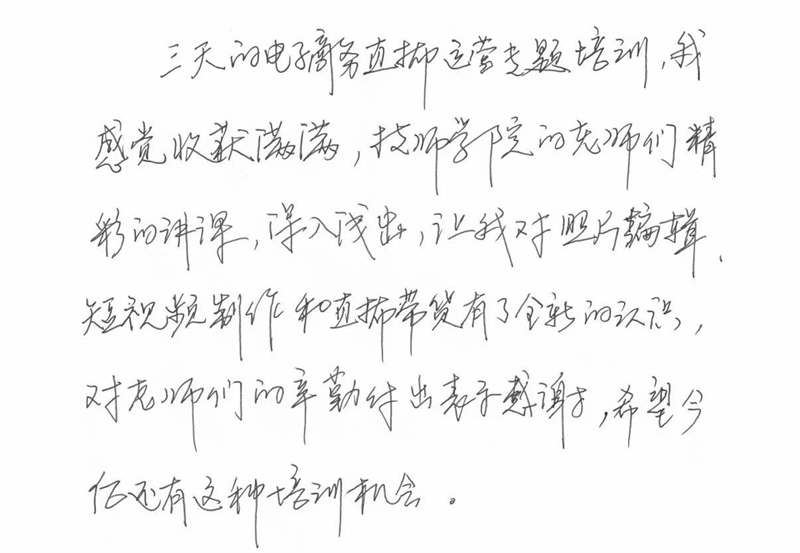 三天的电子商务直播运营专题培训，我
感觉收获满满，技师学院的老师们精
彩的讲课，深入浅出，让我对照片编辑、
短视频制作和直播带货有了全新的认识，
对老师们的辛勤付出表示感谢，希望今
后还有这种培训机会。